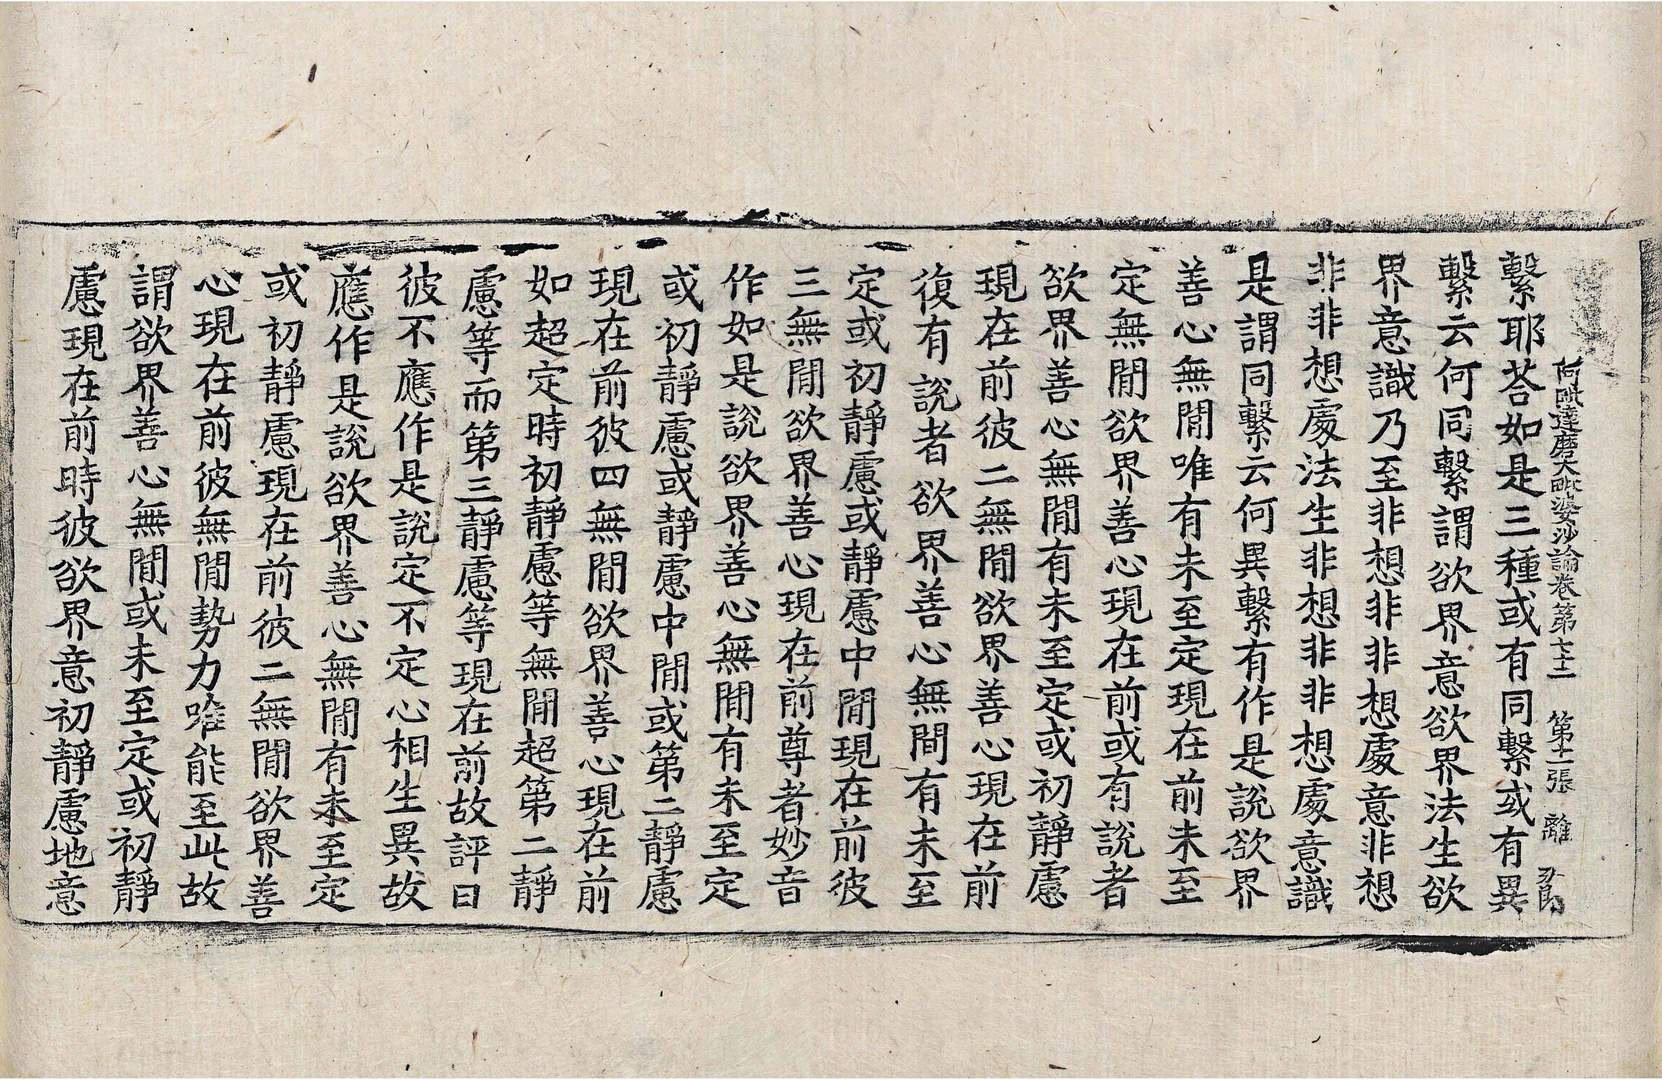 阿毗達磨大毗婆沙論卷第七十二　第十二張　離
繫耶荅如是三種或有同繫或有異
繫云何同繫謂欲界意欲界法生欲
界意識乃至非想非非想處意非想
非非想處法生非想非非想處意識
是謂同繫云何異繫有作是說欲界
善心無閒唯有未至定現在前未至
定無閒欲界善心現在前或有說者
欲界善心無閒有未至定或初靜慮
現在前彼二無閒欲界善心現在前
復有說者欲界善心無間有未至
定或初靜慮或靜慮中閒現在前彼
三無閒欲界善心現在前尊者妙音
作如是說欲界善心無閒有未至定
或初靜慮或靜慮中閒或第二靜慮
現在前彼四無閒欲界善心現在前
如超定時初靜慮等無閒超第二靜
慮等而第三靜慮等現在前故評曰
彼不應作是說定不定心相生異故
應作是說欲界善心無閒有未至定
或初靜慮現在前彼二無閒欲界善
心現在前彼無閒勢力唯能至此故
謂欲界善心無閒或未至定或初靜
慮現在前時彼欲界意初靜慮地意